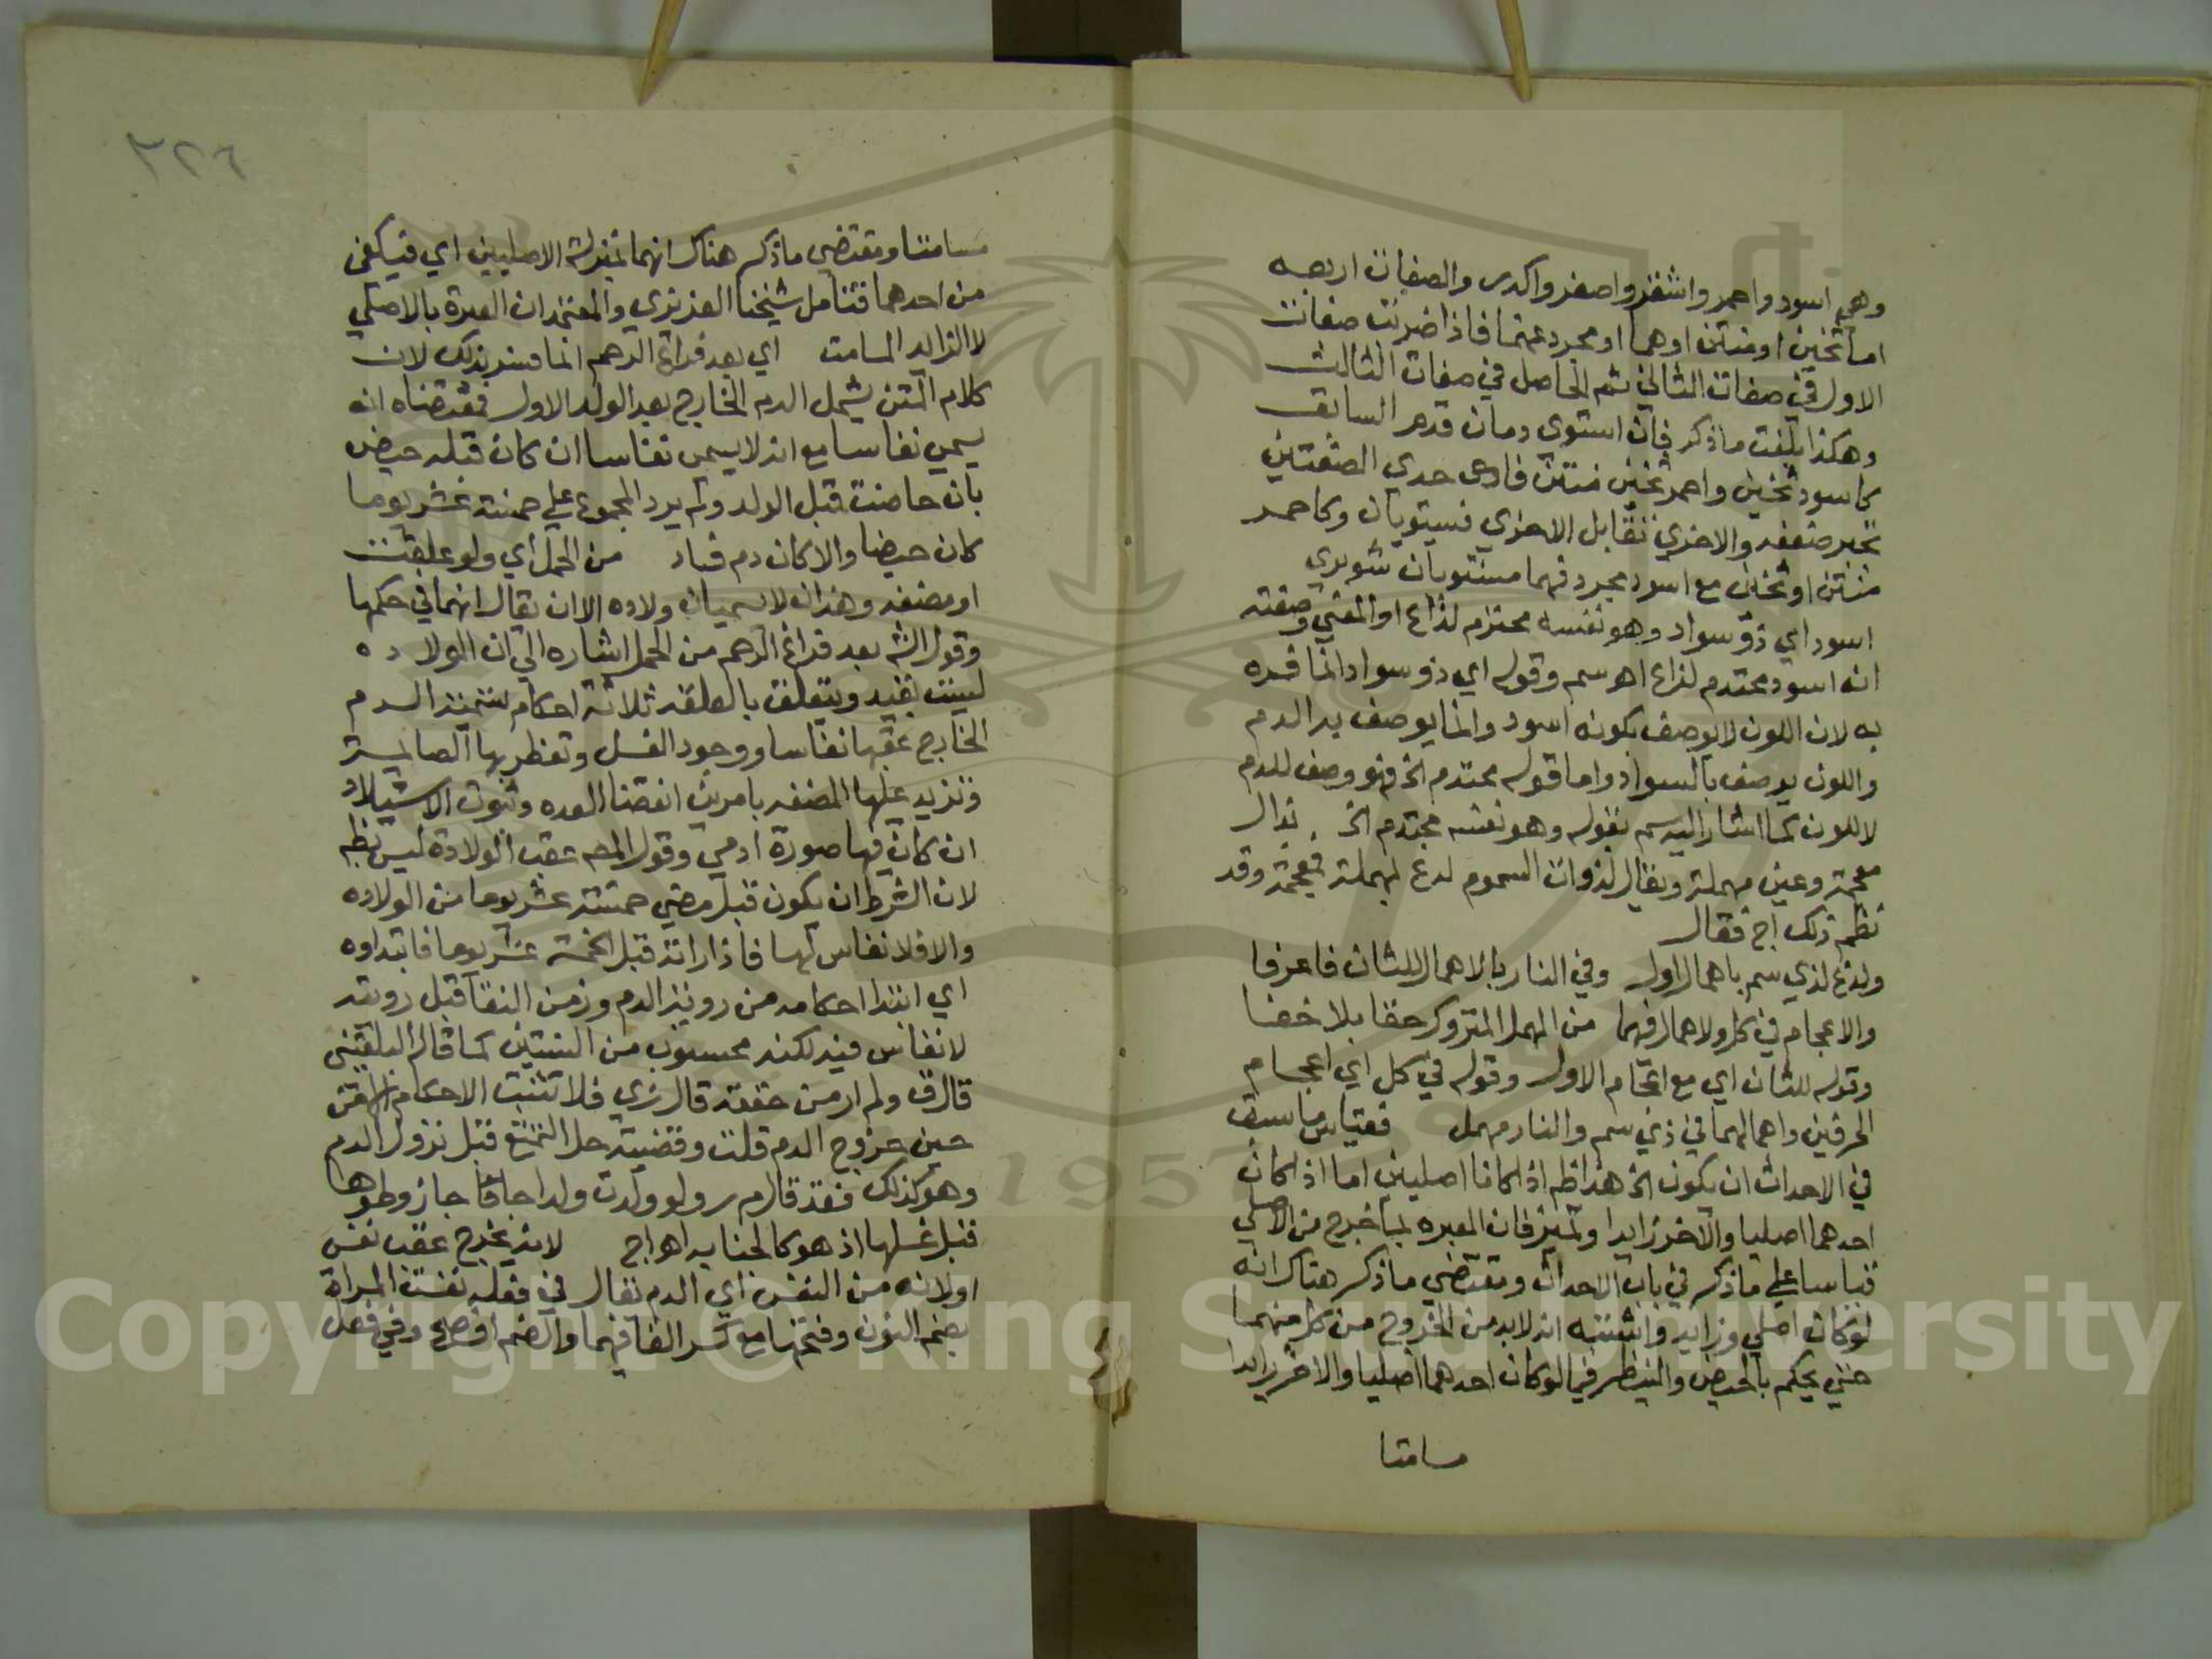 وهي اسود واحمر واشقر واصفر واكدر والصفات اربعه
اما ثخين او منتن او هما او مجرد عنهما فاذا ضربت صفات
الاول في صفات الثاني ثم الحاصل في صفات الثالث
وهكذا بلغت ما ذكر فان استوى دمان قدم السابق
كاسود ثخين واحمر ثخين منتن فاحدى الصفتين
تجبر ضعفه والاخري تقابل الاخري فيستويان وكاحمر
منتن او ثخين مع اسود مجرد فهما مستويان شوبري
اسود اي ذو سواد وهو نفسه محتدم لذاع او المعني وصفته
انه اسود محتدم لذاع اهـ سم وقوله اي ذو سواد انما فسره
به لان اللون لا يوصف بكونه اسود وانما يوصف به الدم
واللون يوصف بالسواد واما قوله محتدم الخ فهو وصف للدم
لا للون كما اشار اليه سم بقوله وهو نفسه محتدم الخ . بذال
معجمة وعين مهملة ويقال لذوات السموم لدغ بمهملة فمعجمة وقد
نظم ذلك اج فقال
ولدغ لذي سم باهمال اول وفي النار بالاهمال للثان فاعرفا
والاعجام في كل والاهمال فيهما من المهمل المتروك حقا بلا خفا
وقوله للثان اي مع اعجام الاول وقوله في كل اي اعجام
الحرفين واهمالهما في ذي سم والنار مهمل فقياس ما سبق
في الاحداث ان يكون الخ هذا ظم اذا كانا اصليين اما اذا كان
احدهما اصليا والاخر زايدا وتميز فان العبره بما خرج من الاصلي
قياسا علي ما ذكر في باب الاحداث ومقتضي ما ذكر هناك انه
لو كان اصلي وزايد واشتبه انه لا بد من الخروج من كل منهما
حتي يحكم بالحيض ولينظر فيما لو كان احدهما اصليا والاخر زايدا
مسامتا
٣٢٦
مسامتا ومقتضي ما ذكر هناك انهما بمنزلة الاصليين اي فيكفي
من احدهما فتامل شيخنا العزيزي والمعتمد ان العبرة بالاصلي
لا الزايد المسامت اي بعد فراغ الرحم انما فسر بذلك لان
كلام المتن يشمل الدم الخارج بعد الولد الاول فمقتضاه انه
يسمي نفاسا مع انه لا يسمي نفاسا ان كان قبله حيض
بان حاضت قبل الولد ولم يزد المجموع علي خمسة عشر يوما
كان حيضا والا كان دم فساد من الحمل اي ولو علقة
او مضغه وهذان لا يسميان ولاده الا ان يقال انهما في حكمها
وقول الش بعد فراغ الرحم من الحمل اشاره الي ان الولاده
ليست بقيد ويتعلق بالعلقه ثلاثة احكام تسمية الدم
الخارج عقبها نفاسا ووجود الغسل وتفطر بها الصايمة
وتزيد عليها المضغه بامرين انقضا العده وثبوت الاستيلاد
ان كان فيها صورة ادمي وقول المص عقب الولادة ليس بظم
لان الشرط ان يكون قبل مضي خمسة عشر يوما من الولاده
والا فلا نفاس لها فاذا راته قبل الخمسة عشر يوما فابتداوه
اي ابتدا احكامه من روية الدم وزمن النقا قبل رويته
لا نفاس فيه لكنه محسوب من الستين كما قال البلقيني
قال ق ولم ار من حققه قال زي فلا تثبت الاحكام
حين خروج الدم قلت وقضيته حل التمتع قبل نزول الدم
وهو كذلك فقد قال م ر ولو ولدت ولدا جافا جاز وطوها
قبل غسلها اذ هو كالجنابه اهـ اج لانه يخرج عقب نفس
او لانه من النفس اي الدم يقال في فعله نفست المراة
بضم النون وفتحها مع كسر الفا فيهما والضم افصح وفي فعل
Copyright © King Saud University
1957